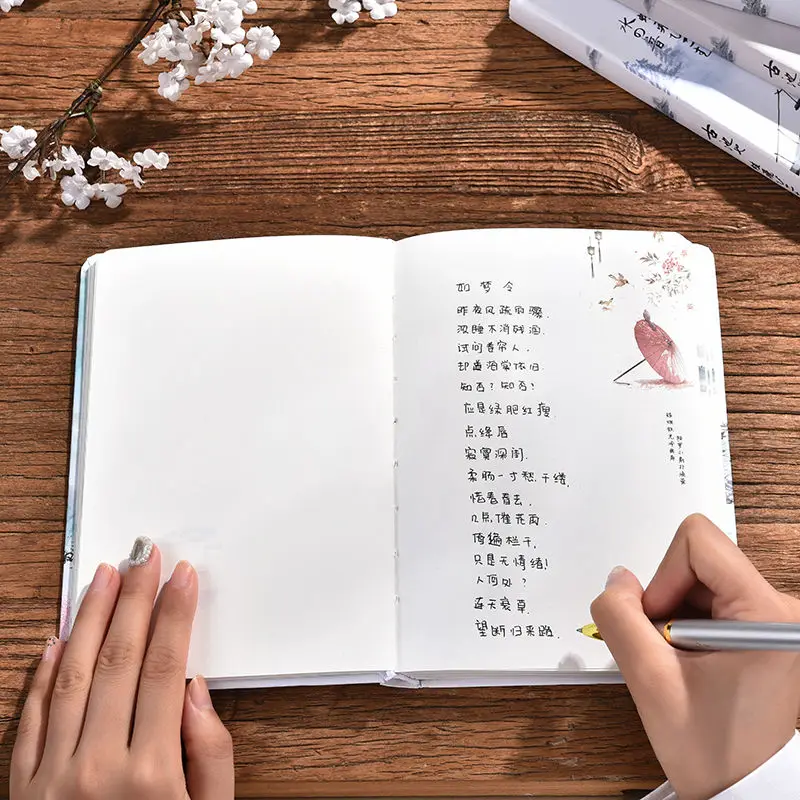 如梦令
昨夜风疏雨骤.
浓睡不消残酒.
试问卷帘人,
却道海棠依旧.
知否?知否?
应是绿肥红瘦.
点绛唇
寂寞深闺.
柔肠一寸愁千缕.
惜春春去.
几点催花雨.
倚遍栏干.
只是无情绪!
人何处?
连天衰草.
望断归来路.
水の音